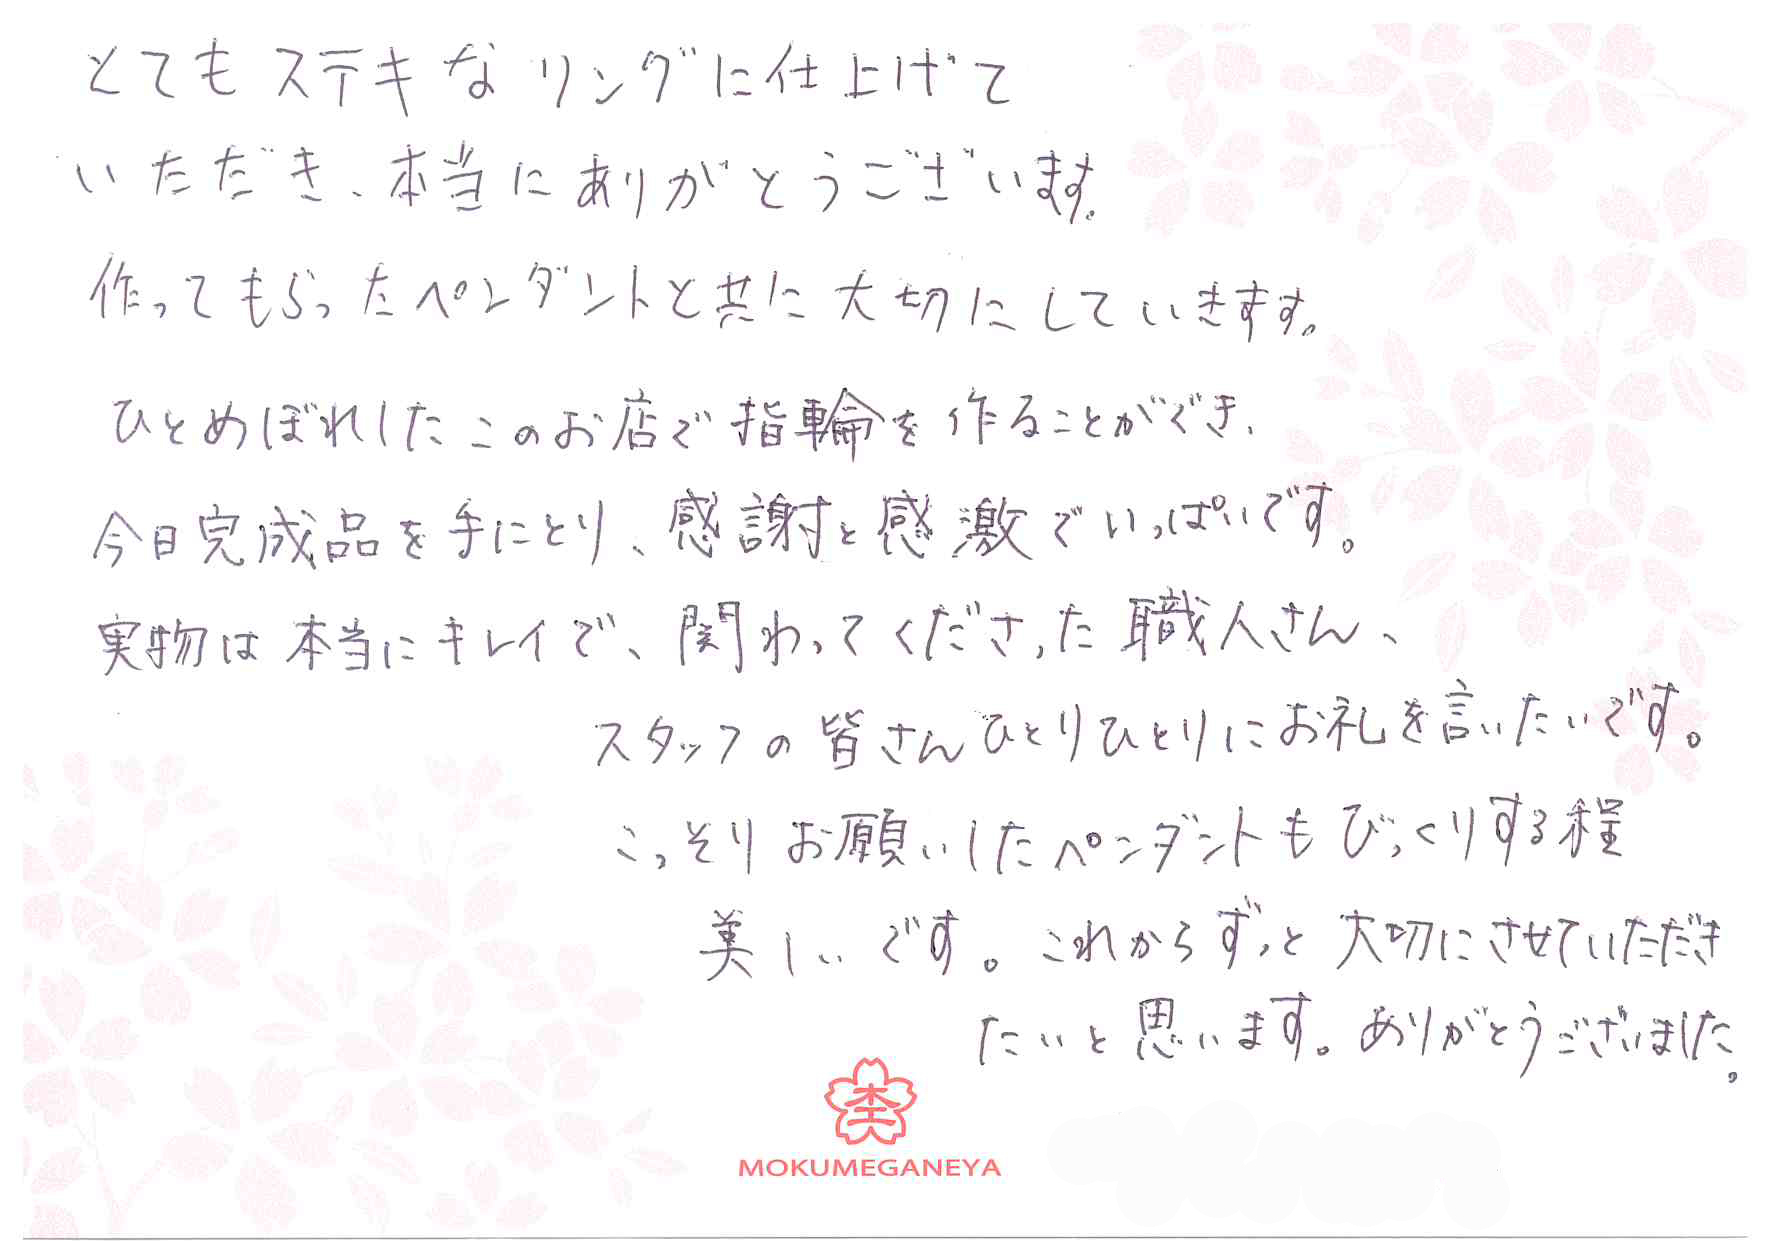 とてもステキなリングに仕上げて
いただき、本当にありがとうございます。
作ってもらったペンダントと共に大切にしていきます。
ひとめぼれしたこのお店で指輪を作ることができ、
今日完成品を手にとり、感謝と感激でいっぱいです。
実物は本当にキレイで、関わってくださった職人さん、
スタッフの皆さんひとりひとりにお礼を言いたいです。
こっそりお願いしたペンダントもびっくりする程
美しいです。これからずっと大切にさせていただき
たいと思います。ありがとうございました。
杢
MOKUMEGANEYA